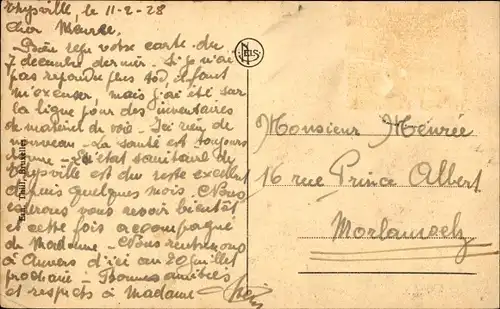 Thysville, le 11-2-28
Cher Meurée.
Bien reçu votre carte du
7 décembre dernier - Si je n'ai
pas répondu plus tôt, il faut
m'excuser, mais j'ai été sur
la ligne pour des inventaires
de matériel de voie - Ici rien de
nouveau - La santé est toujours
bonne - L'état sanitaire de
Thysville est du reste excellent
depuis quelques mois. Nous
espérons vous revoir bientôt
et cette fois accompagné
de Madame - Nous rentrerons
à Anvers d'ici au 20 juillet
prochain - Bonnes amitiés
et respects à Madame
NELS
Thill, Bruxelles
Monsieur Meurée
16 rue Prince Albert
Morlanwelz